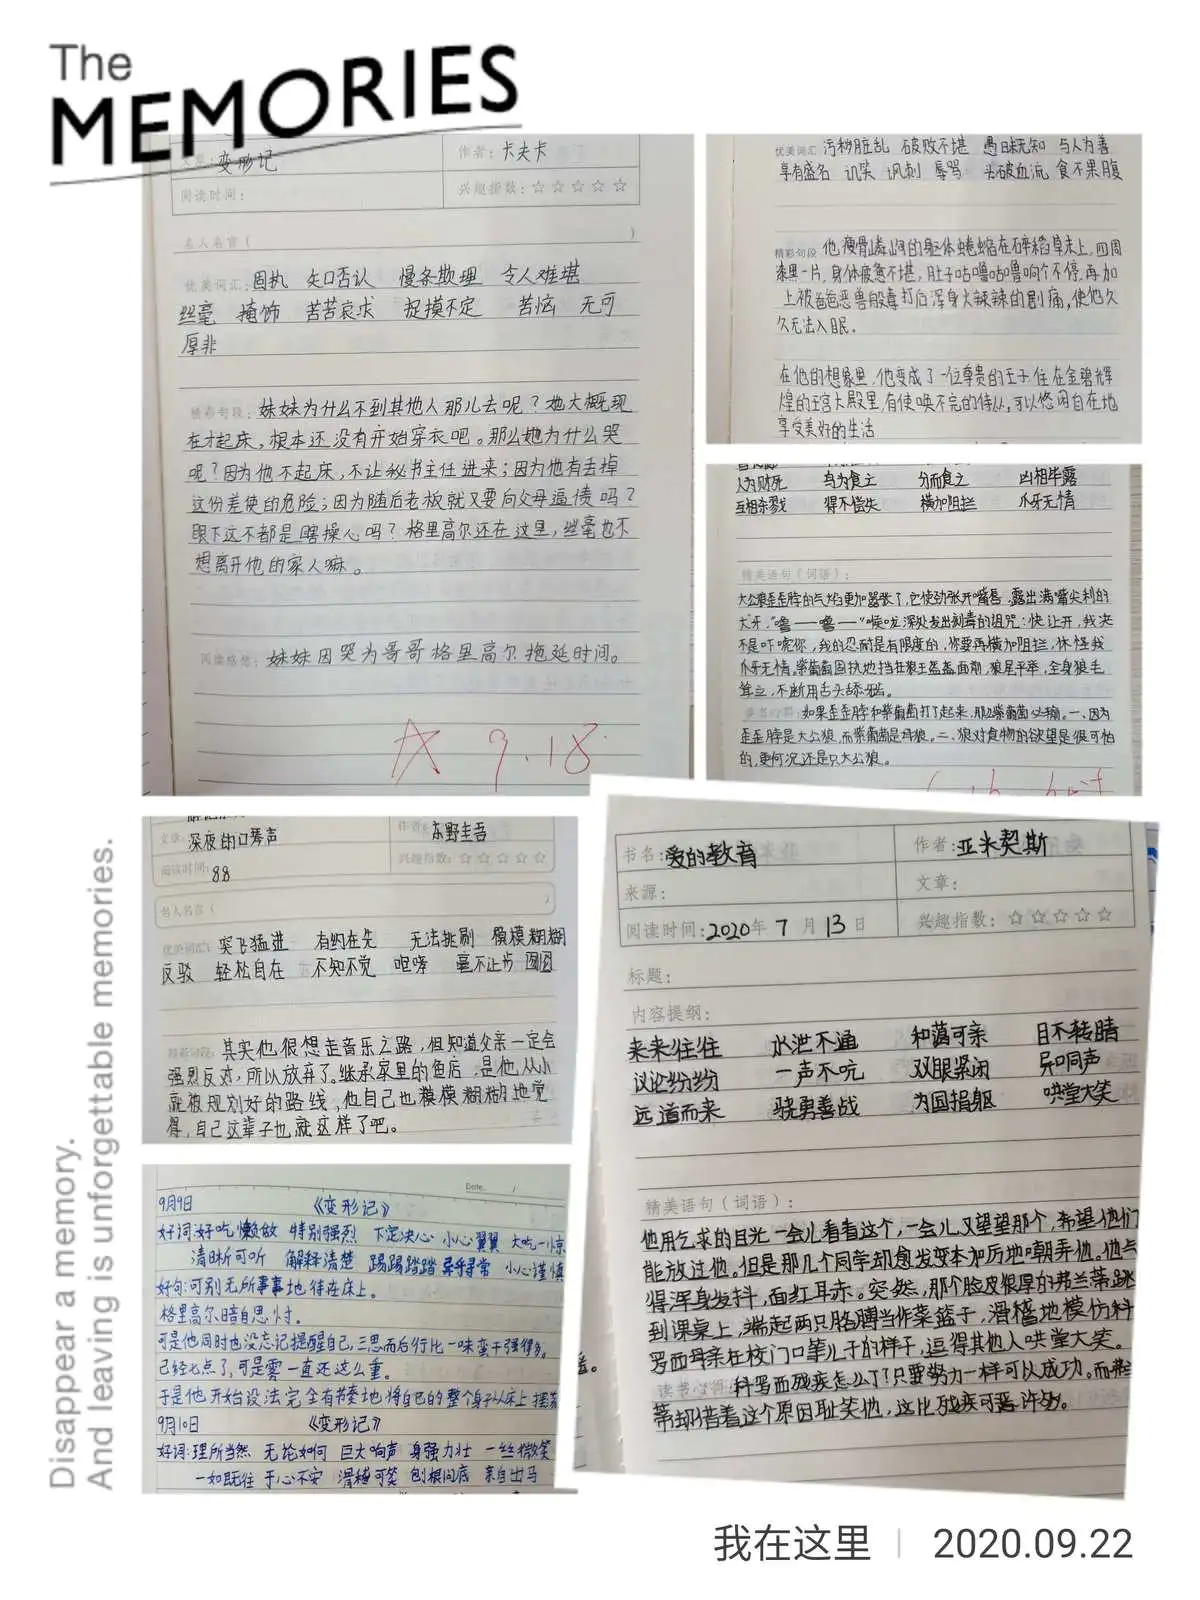 The
MEMORIES
变形记
作者:卡夫卡
阅读时间:
兴趣指数:☆☆☆☆☆
名人名言(
)
优美词汇:固执 矢口否认 慢条斯理 令人难堪
丝毫 掩饰 苦苦哀求 捉摸不定 苦恼 无可
厚非
精彩句段:妹妹为什么不到其他人那儿去呢?她大概现
在才起床,根本还没有开始穿衣吧。那么她为什么哭
呢?因为他不起床,不让秘书主任进来;因为他有丢掉
这份差使的危险;因为随后老板就又要向父母逼债吗?
眼下这不都是瞎操心吗?格里高尔还在这里,丝毫也不
想离开他的家人嘛。
阅读感想:妹妹因哭为哥哥格里高尔拖延时间。
A 9.18
优美词汇 污秽脏乱 破败不堪 愚昧无知 与人为善
享有盛名 讥笑 讽刺 辱骂 头破血流 食不果腹
精彩句段 他瘦骨嶙峋的躯体蜷缩在碎稻草末上,四周
漆黑一片,身体疲惫不堪,肚子咕噜咕噜响个不停,再加
上被爸爸恶兽般毒打后浑身火辣辣的剧痛,使他久
久无法入眠。
在他的想象里,他变成了一位尊贵的王子住在金碧辉
煌的王宫大殿里有使唤不完的侍从,可以悠闲自在地
享受美好的生活
人为财死 鸟为食亡 分而食之 凶相毕露
互相杀戮 得不偿失 横加阻拦 爪牙无情
精美语句(词语):
大公狼歪歪脖的气焰更加嚣张了,它使劲张开嘴唇,露出满嘴尖利的
犬牙,“噜——噜——”喉咙深处发出刻毒的诅咒:快让开,我决
不是吓唬你,我的忍耐是有限度的,你要再横加阻拦,休怪我
爪牙无情。紫葡萄固执地挡在狼王盔盔面前,狼尾平举,全身狼毛
耸立,不断用舌头舔
如果歪歪脖和紫葡萄打了起来,那么紫葡萄必输。一、因为
歪歪脖是大公狼,而紫葡萄是母狼。二、狼对食物的欲望是很可怕
的,更何况还是只大公狼。
文章:深夜的口琴声
作者:东野圭吾
阅读时间:88
兴趣指数:☆☆☆☆☆
名人名言(
)
优美词汇:突飞猛进 有约在先 无法挑剔 模模糊糊
反驳 轻松自在 不知不觉 咆哮 毫不让步 囫囵
精彩句段:其实他很想走音乐之路,但知道父亲一定会
强烈反对,所以放弃了。继承家里的鱼店,是他从小
就被规划好的路线,他自己也模模糊糊地觉
得,自己这辈子也就这样了吧。
Date. /
9月9日 《变形记》
好词:好吃懒做 特别强烈 下定决心 小心翼翼 大吃一惊
清晰可听 解释清楚 踢踢踏踏 异乎寻常 小心谨慎
好句:可别无所事事地待在床上。
格里高尔暗自思忖。
可是他同时也没忘记提醒自己,三思而后行比一味蛮干强得多。
已经七点了,可是雾一直还这么重。
于是他开始设法完全有节奏地将自己的整个身子从床上摆荡
9月10日 《变形记》
好词:理所当然 无论如何 巨大响声 身强力壮 一丝微笑
一如既往 于心不安 滑稽可笑 刨根问底 亲自出马
书名:爱的教育
作者:亚米契斯
来源:
文章:
阅读时间:2020年7月13日
兴趣指数:☆☆☆☆☆
标题:
内容提纲:
来来往往 水泄不通 和蔼可亲 目不转睛
议论纷纷 一声不吭 双眼紧闭 异口同声
远道而来 骁勇善战 为国捐躯 哄堂大笑
精美语句(词语):
他用乞求的目光一会儿看看这个,一会儿又望望那个,希望他们
能放过他。但是那几个同学却愈发变本加厉地嘲弄他。他气
得浑身发抖,面红耳赤。突然,那个脸皮很厚的弗兰蒂跳
到课桌上,端起两只胳膊当作菜篮子,滑稽地模仿科
罗西母亲在校门口等儿子的样子,逗得其他人哄堂大笑。
读书心得:科罗西残疾怎么了?只要努力一样可以成功。而弗兰
蒂却借着这个原因耻笑他,这比残疾可恶许多。
Disappear a memory.
And leaving is unforgettable memories.
我在这里 | 2020.09.22